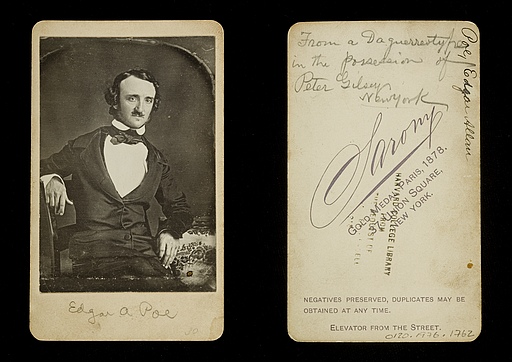 Edgar A. Poe
From a Daguerreotype
in the possession of
Peter Gilsey
New York
Poe, Edgar Allan
Sarony
GOLD MEDAL, PARIS, 1878.
UNION SQUARE,
NEW YORK.
HARVARD COLLEGE LIBRARY
FROM
NEGATIVES PRESERVED, DUPLICATES MAY BE
OBTAINED AT ANY TIME.
ELEVATOR FROM THE STREET.
0120.1976.1762